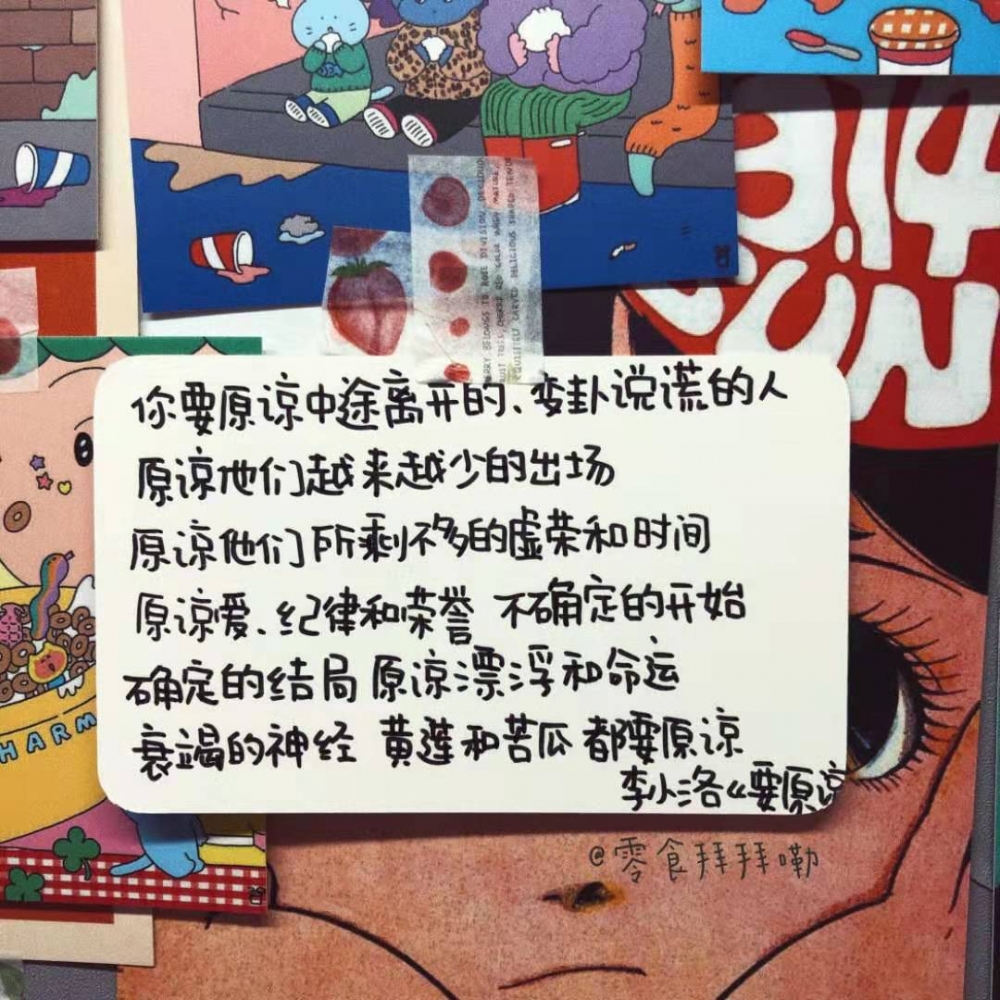 314
UN
你要原谅中途离开的、变卦说谎的人
原谅他们越来越少的出场
原谅他们所剩不多的虚荣和时间
原谅爱、纪律和荣誉 不确定的开始
确定的结局 原谅漂浮和命运
衰竭的神经 黄莲和苦瓜 都要原谅
李小洛《要原谅
HARM
@零食拜拜嘞